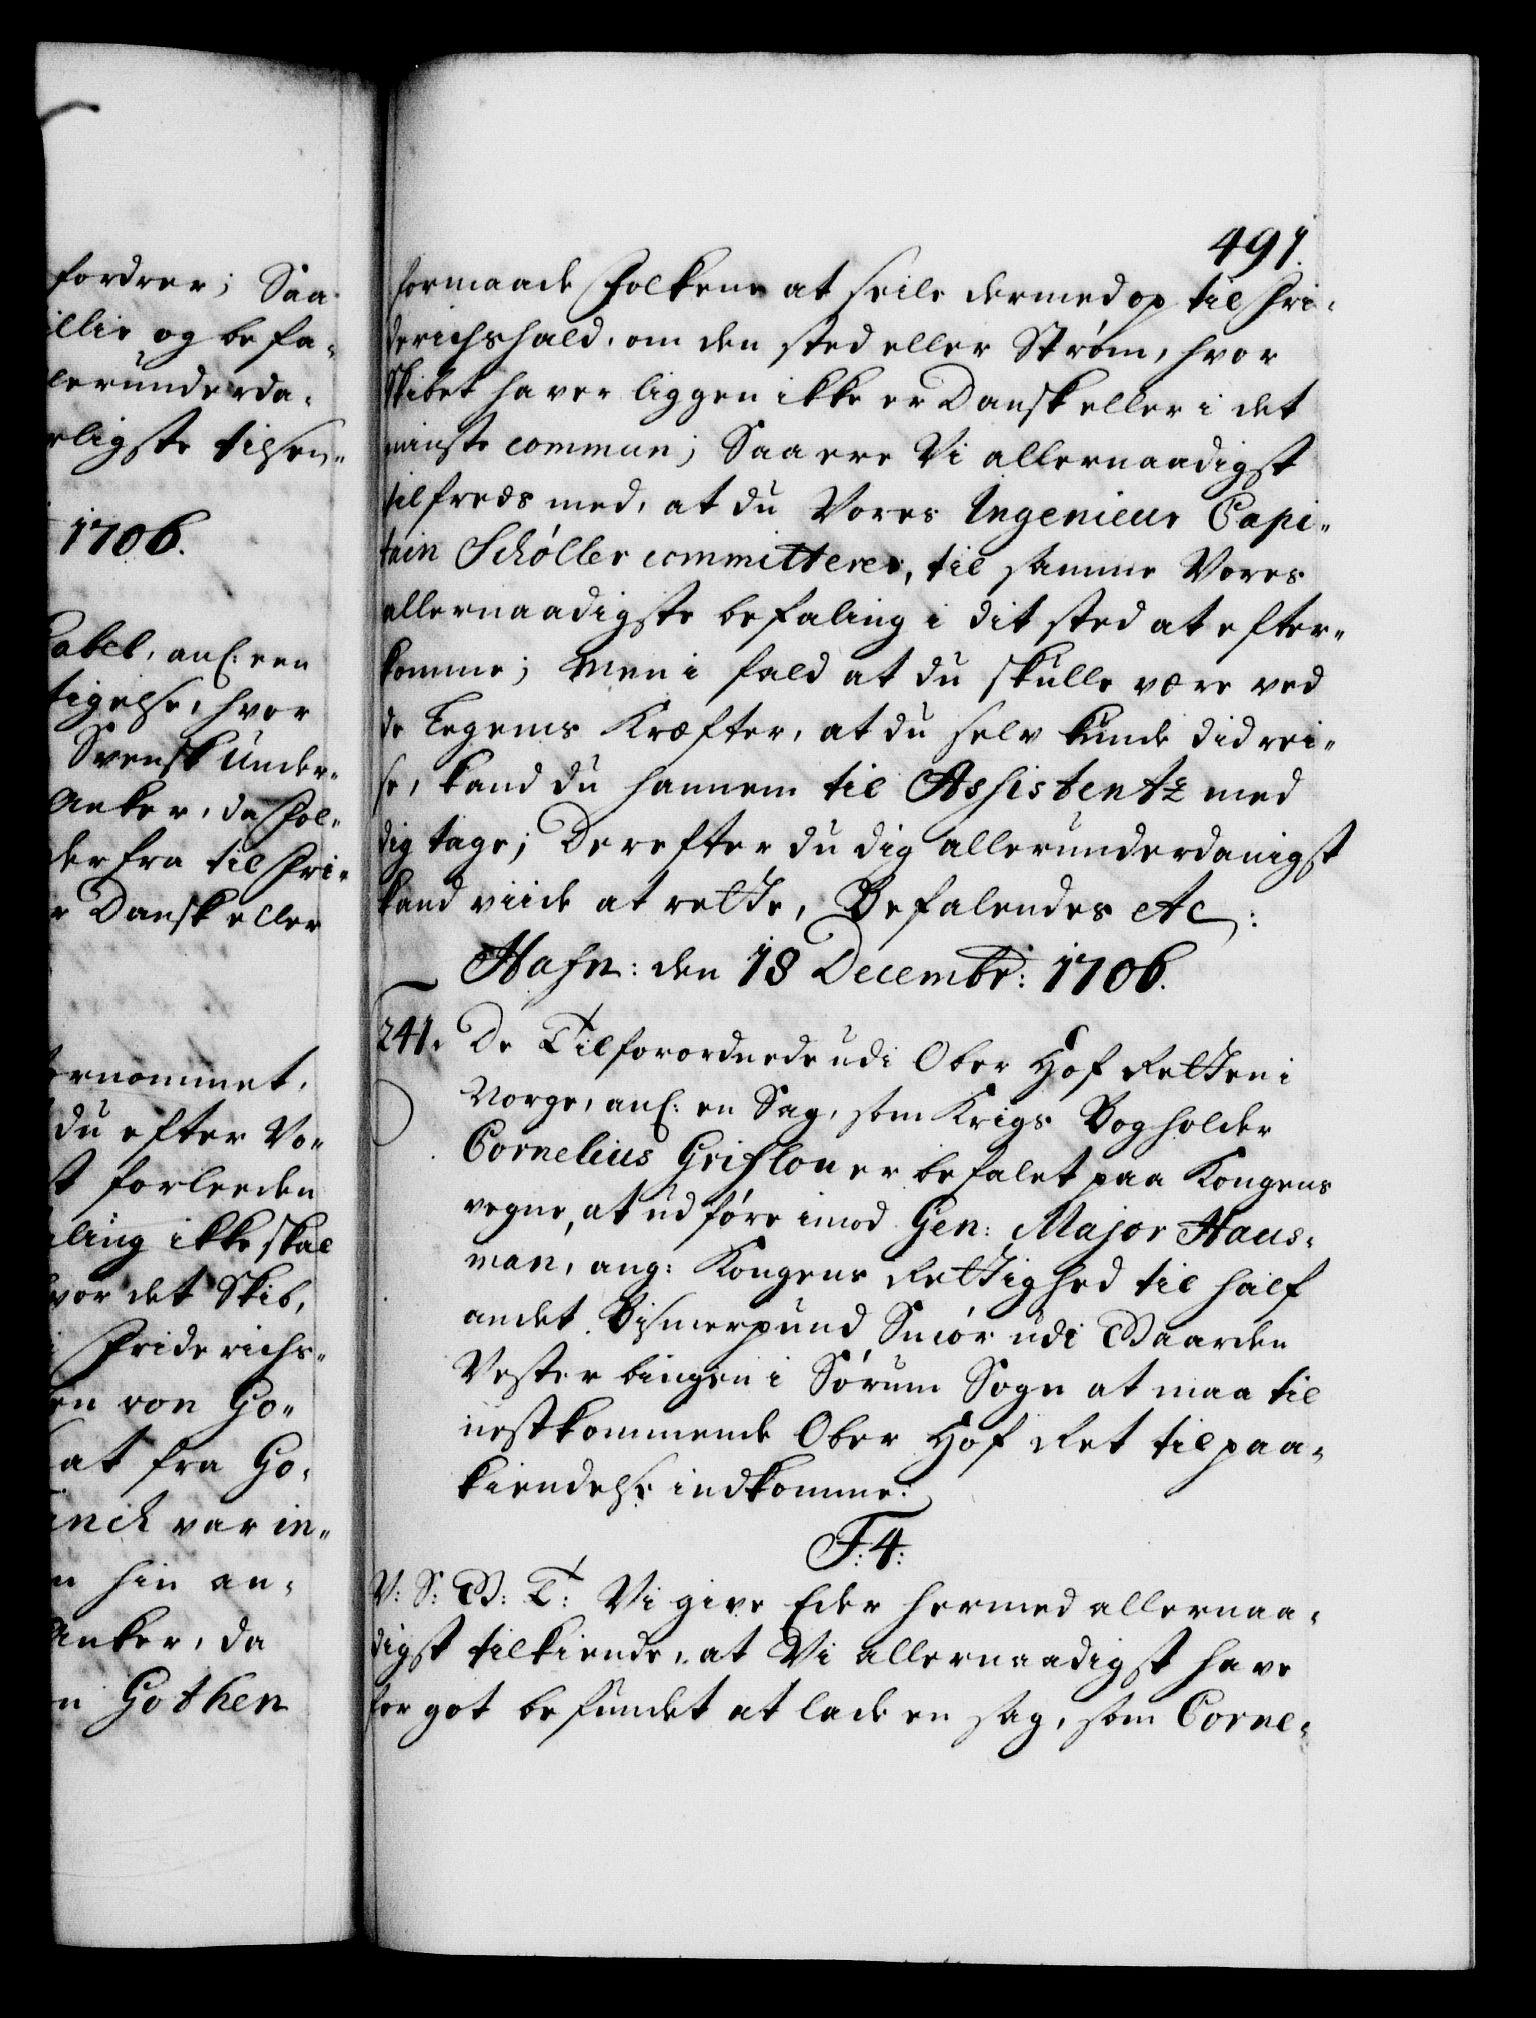 fordrer; Saa
illie og befa-
lerunderda-
rligste tilsen-
1706.
Gabel, anl: een
tigelse, hvor
Svensk Under-
Anker, da Fol-
derfra til Fri-
r Dansk eller
ernommet,
du efter Vo-
t forleeden
ling ikke skal
vor det Skib,
i Friderichs-
en von Go-
at fra Go-
inck var in-
n hin an-
Anker, da
n Gothen
491.
formaade Folkene at seile dermed op til Fri-
derichshald, om den sted eller Strøm, hvor
Skibet haver liggen ikke er Dansk eller i det
minste commun; Saa ere Vi allernaadigst
tilfreds med, at du Vores Ingenieur Capi-
tain Schøller committerer, til samme Vores
allernaadigste befaling i dit sted at efter-
komme; Men i fald at du skulle være ved
de Legems Kræfter, at du selv kunde did rei-
se, kand du hannem til Assistentz med
dig tage; Derefter du dig allerunderdanigst
kand viide at rette, Befalendes etc:
Hafn: den 18 Decembr: 1706.
241. De Tilforordnede udi Ober Hof Retten i
Norge, anl: en Sag, som Krigs Bogholder
Cornelius Griflou er befalet paa Kongens
vegne, at udføre imod Gen: Major Haus-
man, ang: Kongens Rettighed til half
andet Bismerpund Smiør udi Gaarden
Vester bingen i Sørum Sogn at maa til
nestkommende Ober Hof Ret til paa-
kiendelse indkomme.
F:4:
V: S: G: T: Vi give Eder hermed allernaa-
digst tilkiende, at Vi allernaadigst have
for got befundet at lade en sag, som Corne-